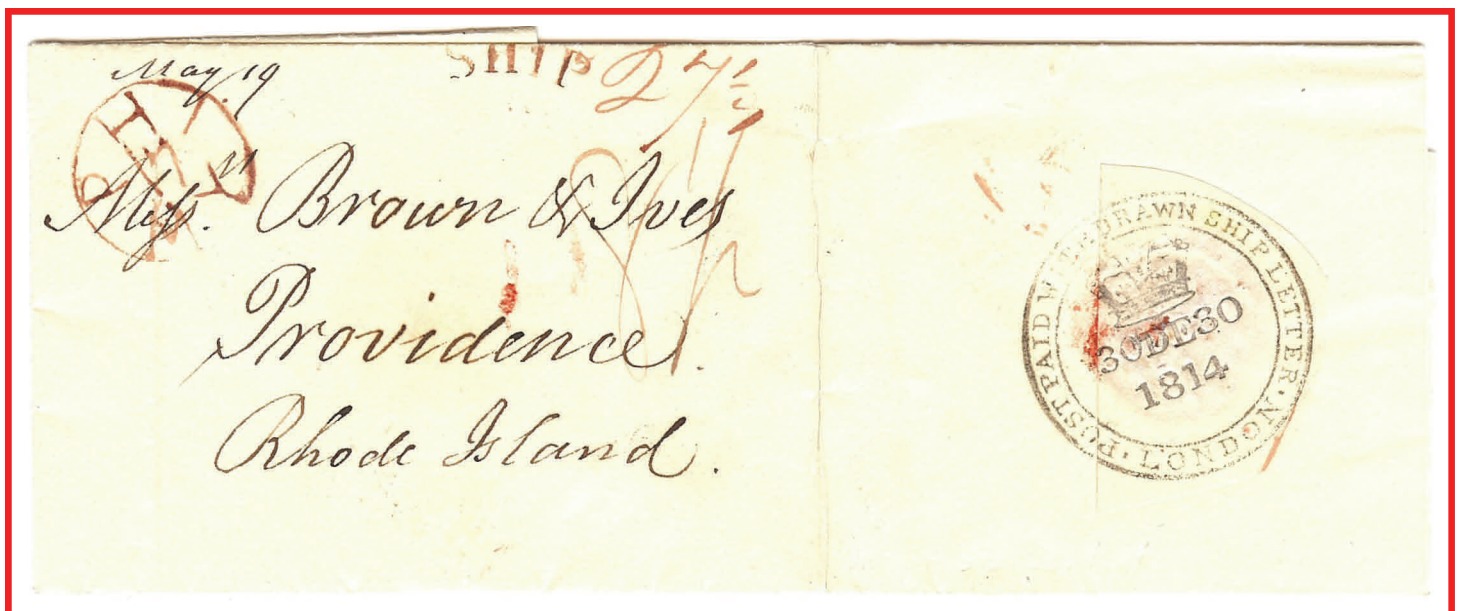 May 19
SHIP 27½
Mess.rs Brown & Ives
Providence.
Rhode Island.
POSTPAID WITHDRAWN SHIP LETTER · LONDON ·
30DE30
1814